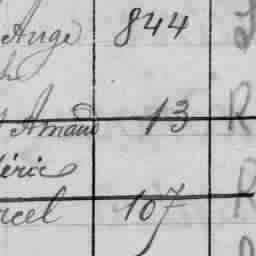 Ange 844
Amand 13 R
éric
rcel 107